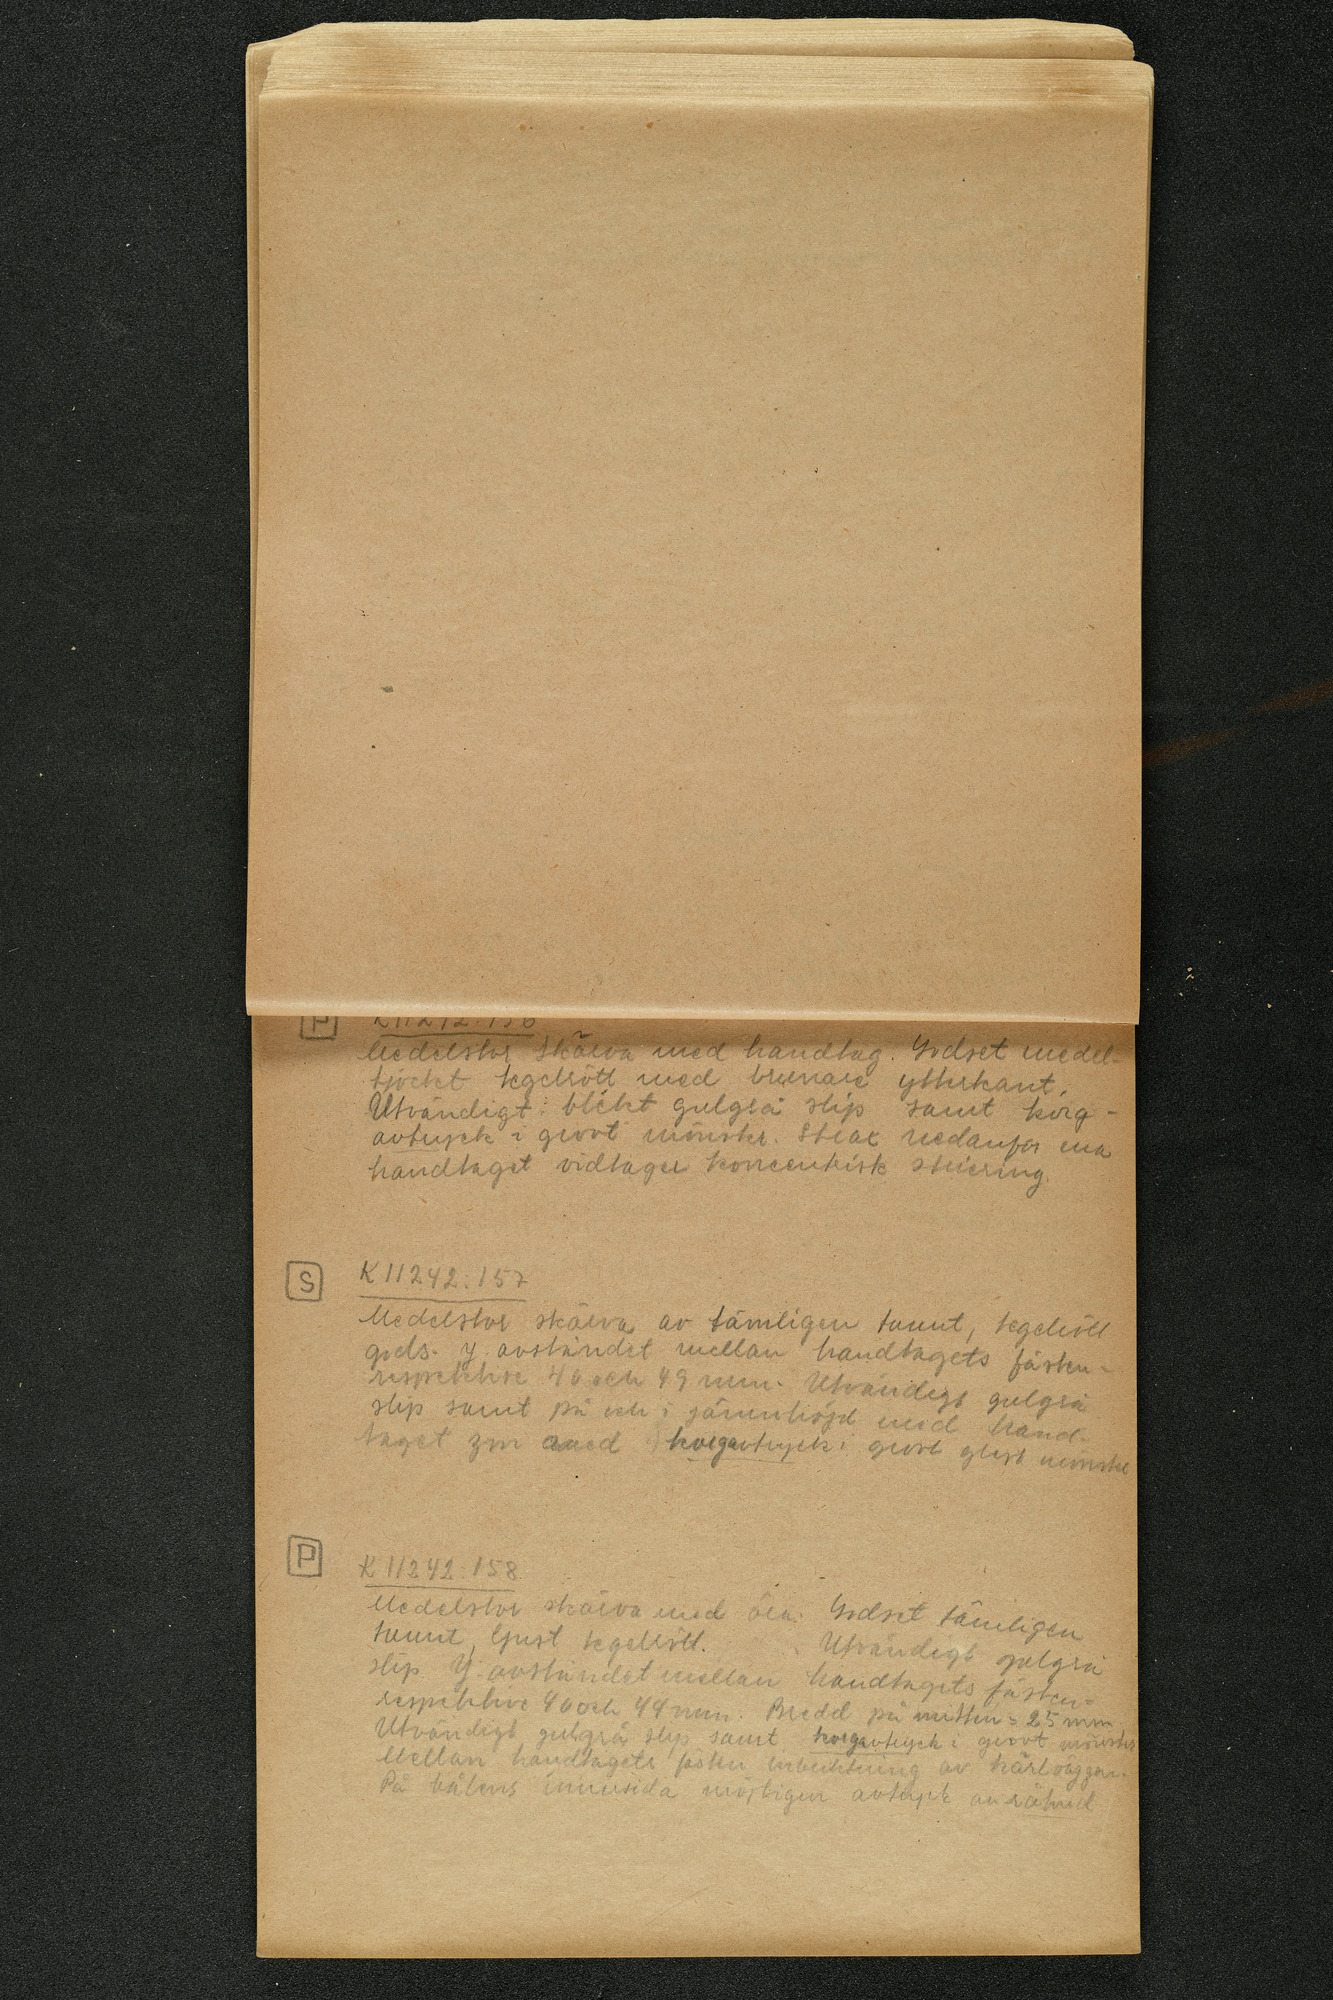 P K11242:156
Medelstor skärva med handtag. Godset medel-
tjockt tegelrött med brunare ytterkant.
Utvändigt: blekt gulgrå slip samt korg-
avtryck i grovt mönster. Strax nedanför ena
handtaget vidtager koncentrisk striering.
S K11242:157
Medelstor skärva av tämligen tunnt, tegelrött
gods. Y. avståndet mellan handtagets fästen-
respektive 40 och 49 mm. Utvändigt gulgrå
slip samt på och i jämnhöjd med hand-
taget korgavtryck i grovt glest mönster
P K11242:158
Medelstor skärva med öra. Godset tämligen
tunnt, ljust tegelrött. Utvändigt gulgrå
slip. Y. avståndet mellan handtagets fästen-
respektive 40 och 44 mm. Bredd på mitten = 25 mm.
Utvändigt gulgrå slip samt korgavtryck i grovt mönster
Mellan handtagets fästen inbuktning av kärlväggen.
På bålens innersida möjligen avtryck av